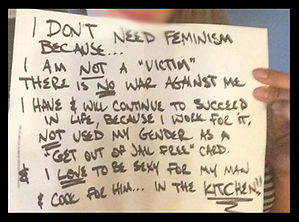 I DON'T NEED FEMINISM
BECAUSE...
I AM NOT A "VICTIM"
THERE IS NO WAR AGAINST ME
I HAVE & WILL CONTINUE TO SUCCEED
IN LIFE, BECAUSE I WORK FOR IT,
NOT USED MY GENDER AS A
"GET OUT OF JAIL FREE" CARD.
I LOVE TO BE SEXY FOR MY MAN
& COOK FOR HIM... IN THE KITCHEN!!